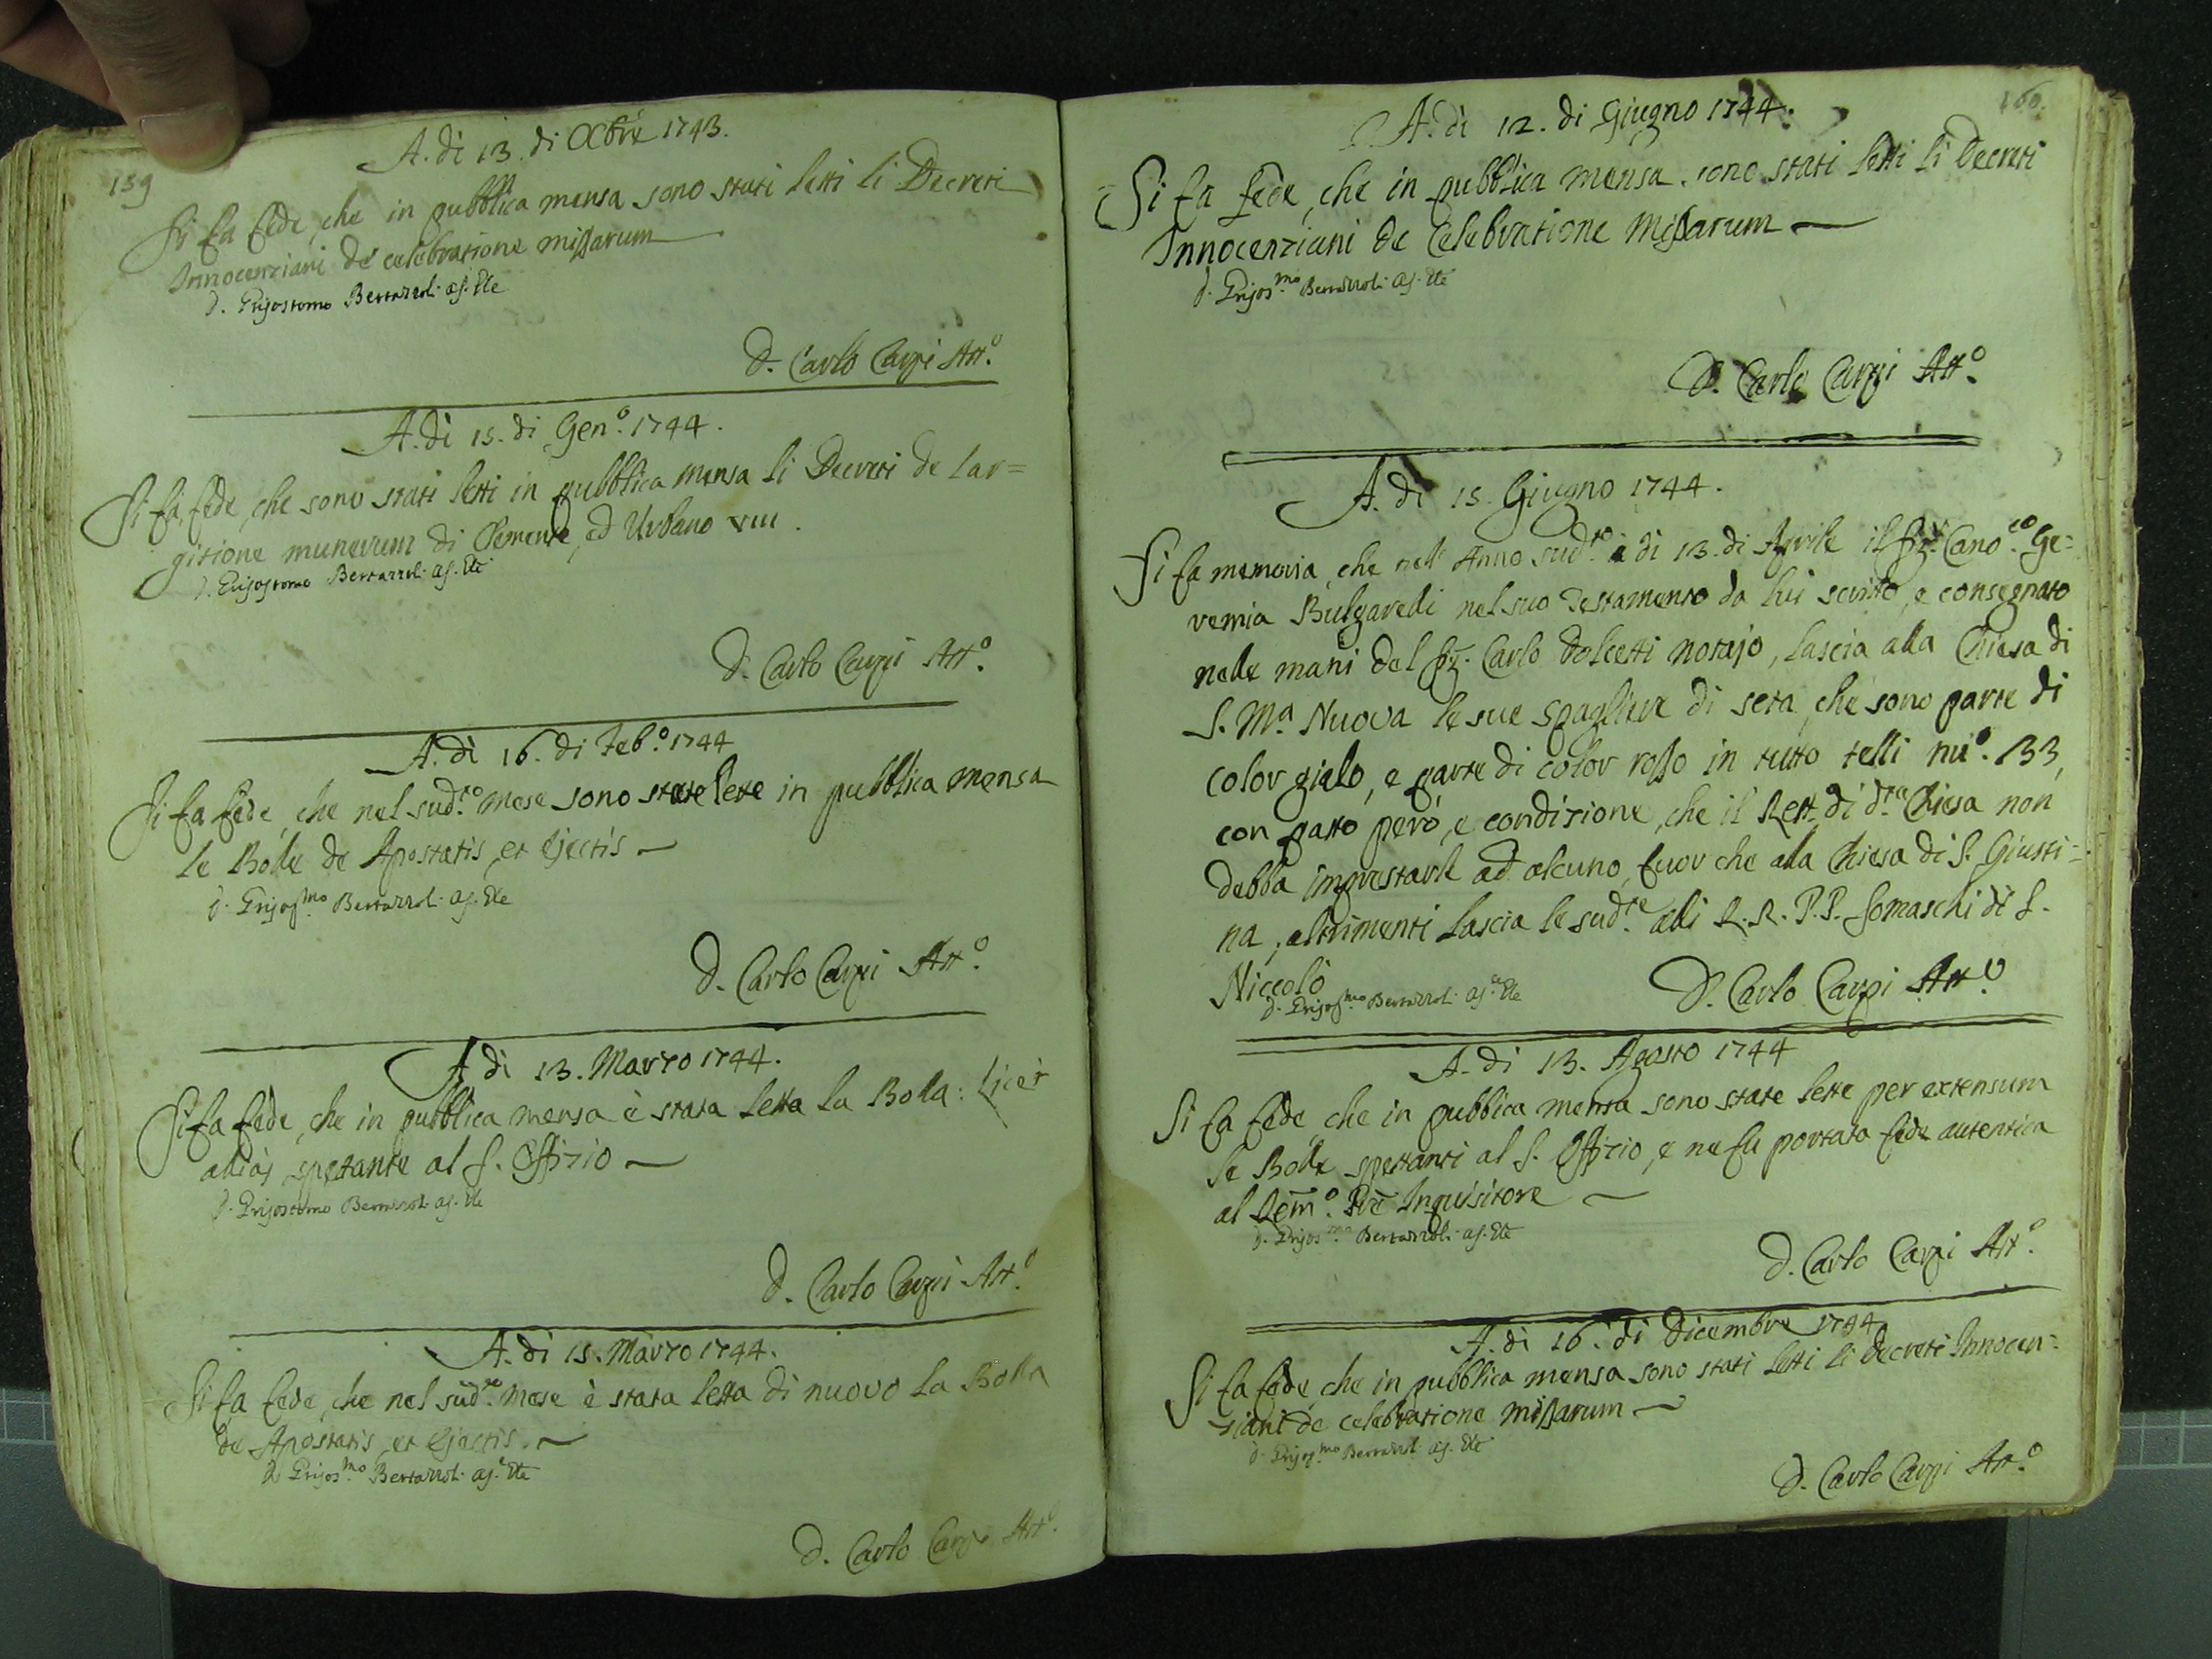 159
A. dì 13. di Octbre 1743.
Si fa fede, che in pubblica mensa sono stati letti li Decreti
Innocenziani de celebratione missarum
D. Grisostomo Bertazzoli
D. Carlo Carpi Att.º
A. dì 15. di Gen.º 1744.
Si fa fede, che sono stati letti in pubblica mensa li Decreti de lar=
gitione munerum di Clemente, ed Urbano VIII.
D. Grisostomo Bertazzoli
D. Carlo Carpi Att.º
A. dì 16. di Feb.º 1744
Si fa fede, che nel sud.to mese sono state lette in pubblica mensa
le Bolle de Apostatis, et Ejectis
D. Grisos.mo Bertazzoli
D. Carlo Carpi Att.º
A dì 13. Marzo 1744.
Si fa fede, che in pubblica mensa è stata letta la Bolla: Licet
aliàs spettante al S. Offizio
D. Grisostomo Bertazzoli
D. Carlo Carpi Att.º
A. dì 15. Marzo 1744.
Si fa fede, che nel sud.to mese è stata letta di nuovo la Bolla
de Apostatis, et Ejectis.
D. Grisos.mo Bertazzoli
D. Carlo Carpi Att.º
160.
A. dì 12. di Giugno 1744.
Si fa fede, che in pubblica mensa sono stati letti li Decreti
Innocenziani de Celebratione Missarum
D. Grisos.mo Bertazzoli
D. Carlo Carpi Att.º
A. dì 15. Giugno 1744.
Si fa memoria, che nell' Anno sud.to a dì 13. di Aprile il Sig.r Cano.co Ge=
remia Bulgarelli nel suo Testamento da lui scritto, e consegnato
nelle mani del Sig. Carlo Dolcetti notajo, lascia alla Chiesa di
S. M.a Nuova le sue spagliere di seta, che sono parte di
color gialo, e parte di color rosso in tutto telli nu.º 133,
con patto però, e condizione, che il Rett. di d.ta Chiesa non
debba imprestarle ad alcuno, fuor che alla Chiesa di S. Giusti=
na, altrimenti lascia le sud.te alli R.R. P.P. Somaschi di S.
Niccolò
D. Grisos.mo Bertazzoli
D. Carlo Carpi Att.º
A. dì 13. Agosto 1744
Si fa fede, che in pubblica mensa sono state lette per extensum
le Bolle spettanti al S. Offizio, e ne fu portata fede autentica
al Rem.º Pre Inquisitore
D. Grisos.mo Bertazzoli
D. Carlo Carpi Att.º
A. dì 16. di Dicembre 1744
Si fa fede, che in pubblica mensa sono stati letti li decreti Innocen=
ziani de celebratione missarum
D. Grisos.mo Bertazzoli
D. Carlo Carpi Att.º